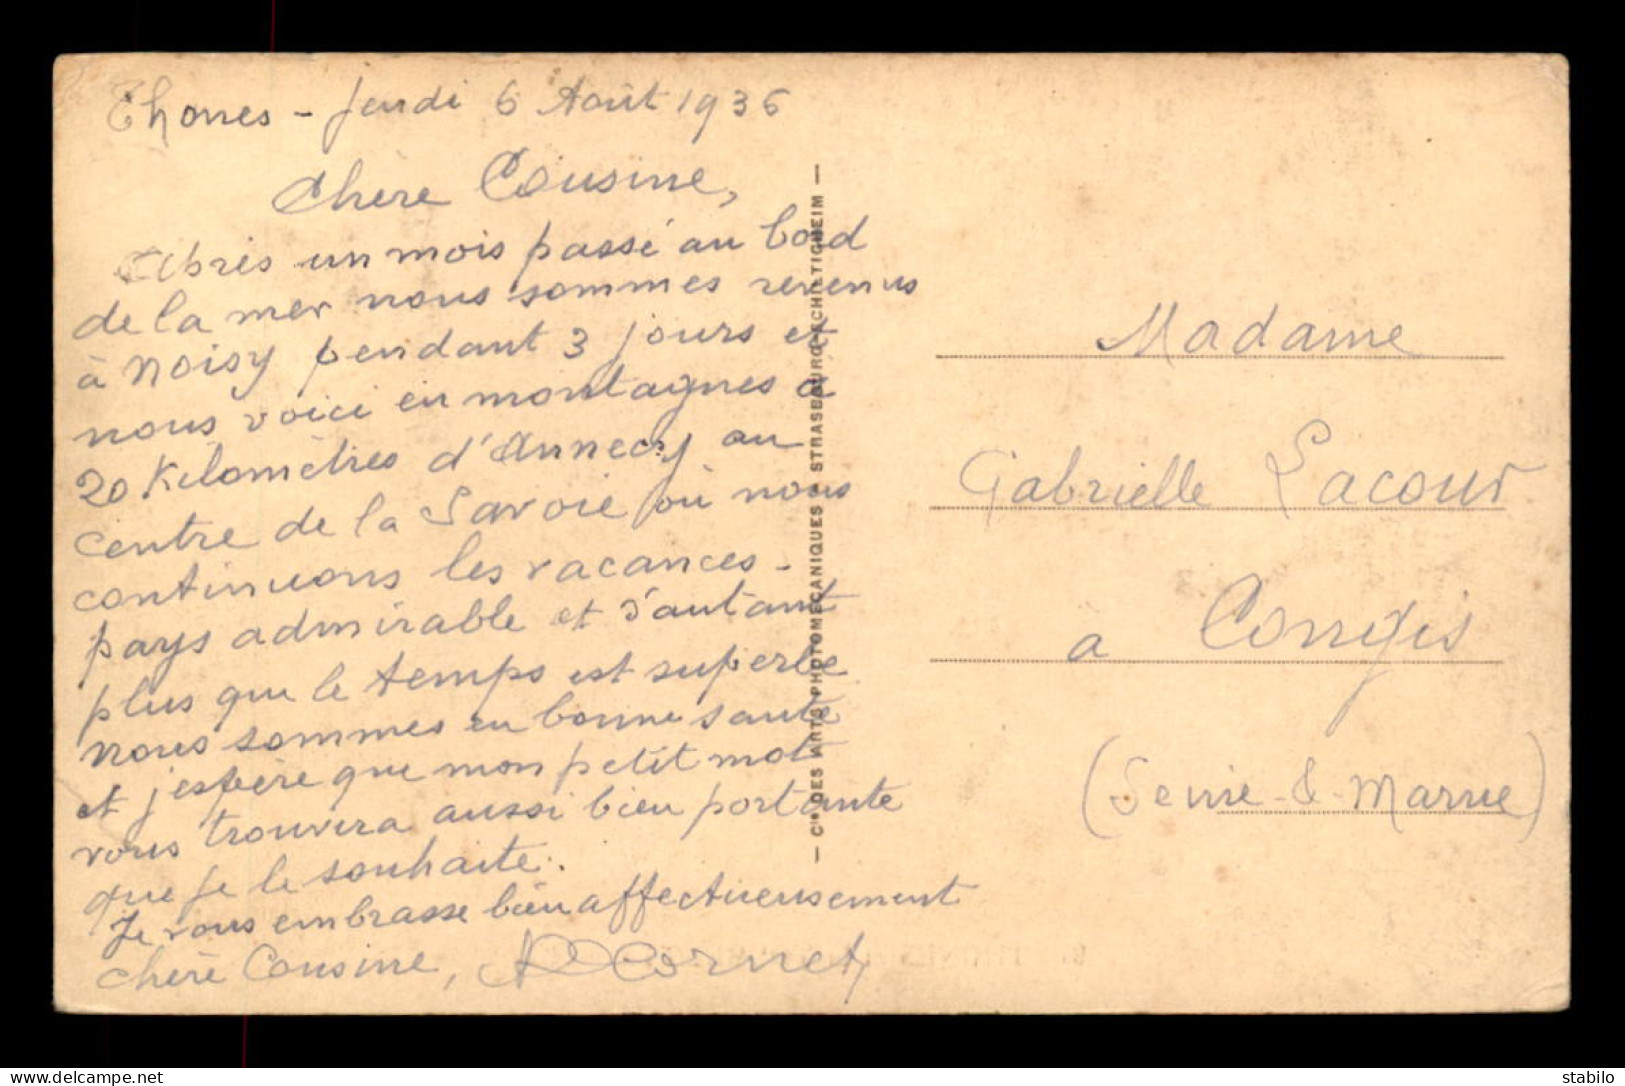 Thones - Jeudi 6 Août 1936
Chère Cousine,
Après un mois passé au bord
de la mer nous sommes revenus
à Noisy pendant 3 jours et
nous voici en montagnes à
20 Kilomètres d'Annecy au
centre de la Savoie où nous
continuons les vacances -
pays admirable et d'autant
plus que le temps est superbe
nous sommes en bonne santé
et j'espère que mon petit mot
vous trouvera aussi bien portante
que je le souhaite.
Je vous embrasse bien affectueusement
chère Cousine, Cornet
— Cie DES ARTS PHOTOMECANIQUES - STRASBOURG-SCHILTIGHEIM —
Madame
Gabrielle Lacour
à Congis
(Seine-&-Marne)
www.delcampe.net
stabilo